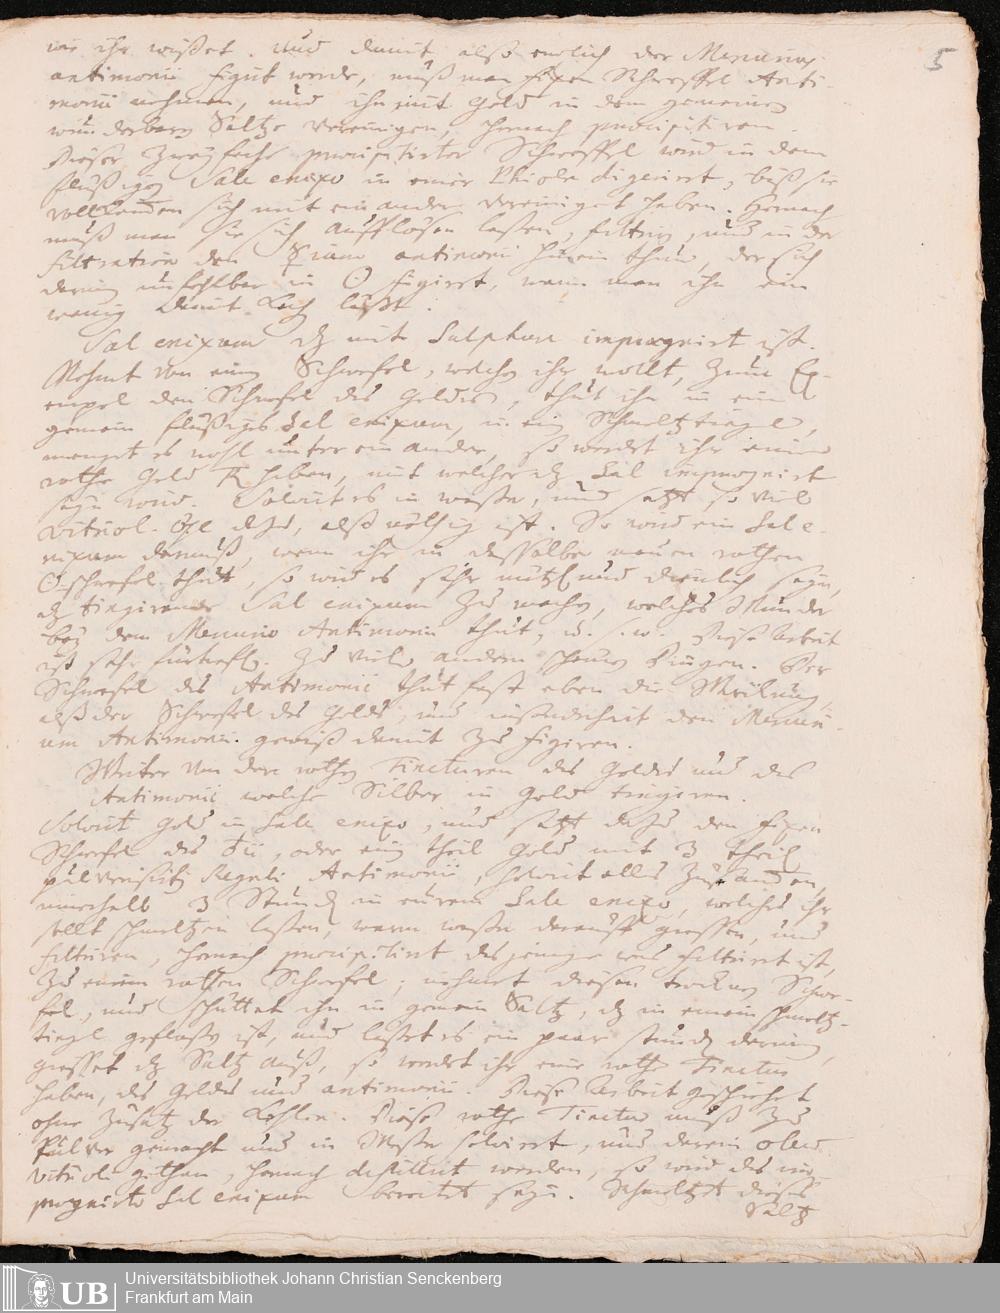 5
wie ihr wißet. Und damit alß endlich der Mercurius
antimonii figirt werde, muß man fixen Schweffel Anti-
monii nehmen, und ihn mit Gold in dem gemeinen
wunderbaren Saltze vereinigen, hernach praecipitiren.
Dieser zweyfache praecipitirter Schweffel wird in dem
flüßigen Sale enixo in einer Phiole digerirt, biß sie
vollkommen sich mit einander vereiniget haben. Hernach
muß man sie sich aufflösen laßen, filtriren, und in der
filtration den ☿rium antimonii hinein thun, der sich
darinn unfehlbar in ☉ figirt, wenn man ihn ein
wenig damit kochen läßt.
Sal enixum dz mit Sulphure impraegnirt ist.
Nehmet von einem Schwefel, welchen ihr wollt, zum Ex-
empel den Schwefel des Goldes, thut ihn in ein
gemein flüßiges Sal enixum, in ein Schmeltztiegel,
menget es wohl unter einander, so werdet ihr eine
rothe Gold haben, mit welcher dz Sal impraegnirt
seyn wird. Solvirt es in waßer, und setzt so viel
Vitriol-Öle dazu, alß nöthig ist. So wird ein Sal e-
nixum daraus, wenn ihr in desselbe neuen rothen
☉-schwefel thut, so wird es sehr nützl und dienlich seyn,
dz tingirende Sal enixum zu machen, welches Wunder
bey dem Mercurio Antimonii thut, u. s. w. Diese Arbeit
ist sehr fürtrefl. zu vielen andern schönen Dingen. Der
Schwefel des Antimonii thut fast eben die Wirkung,
alß der Schwefel des Golds, und insonderheit den Mercuri-
um Antimonii gewiß damit zu figiren.
Weiter von den rothen Tincturen des Goldes und des
Antimonii welche Silber in Gold tingiren.
Solvirt Gold in Sale enixo, und setzt dazu den fixen
Schwefel des ♁ii, oder ein theil Gold mit 3 theil
pulverisirten Reguli Antimonii, solvirt alles zusammen,
innerhalb 3 Stunden in eurem Sale enixo, welches ihr
sollt schmeltzen laßen, warm waßer darauff gießen, und
filtriren, hernach praecipitirt dasjenige was filtrirt ist,
zu einem rothen Schwefel; nehmet diesen trocknen Schwe-
fel, und schüttet ihn in gemein Saltz, dz in einem schmeltz-
tiegel geflossen ist, und laßet es ein paar stunden darinn,
gießet dz Saltz auß, so werdet ihr eine rothe Tinctur
haben, des Goldes und antimonii. Diese Arbeit geschiehet
ohne Zusatz der Kohlen. Diese rothe Tinctur muß zu
Pulver gemacht und in Waßer solvirt, und darein oleum
vitrioli gethan, hernach destillirt werden, so wird das im-
praegnirte Sal enixum bereitet seyn. Schmeltzt dieses
Saltz
UB Universitätsbibliothek Johann Christian Senckenberg
Frankfurt am Main